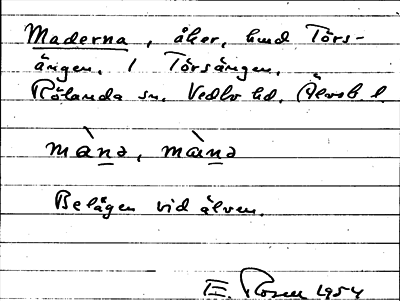 Maderna, åker, hmd Törs-
ängen. 1 Törsängen.
Rölanda sn. Vedbo hd. Älvsb. l.
mànə, mànə
Belägen vid älven.
E. Rosén 1954